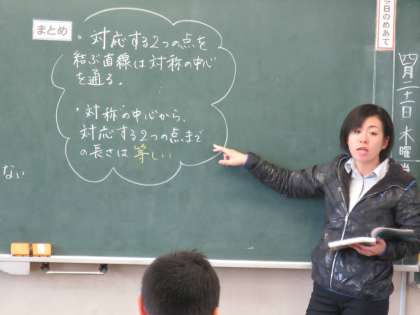 まとめ
・対応する2つの点を
結ぶ直線は対称の中心
を通る。
・対称の中心から、
対応する2つの点まで
の長さは等しい
ない
今日のめあて
四月二十一日木曜